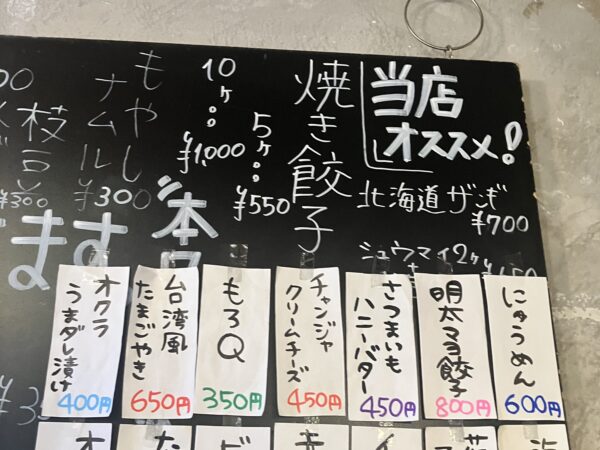 当店
オススメ!
北海道ザンギ
¥700
シュウマイ2ヶ
焼き餃子
5ヶ…¥550
10ヶ…¥1,000
もやし
ナムル
¥300
枝豆
¥300
ます
本
にゅうめん
600円
明太マヨ餃子
800円
さつまいも
ハニーバター
450円
チャンジャ
クリームチーズ
450円
もろQ
350円
台湾風
たまごやき
650円
オクラ
うまダレ漬け
400円